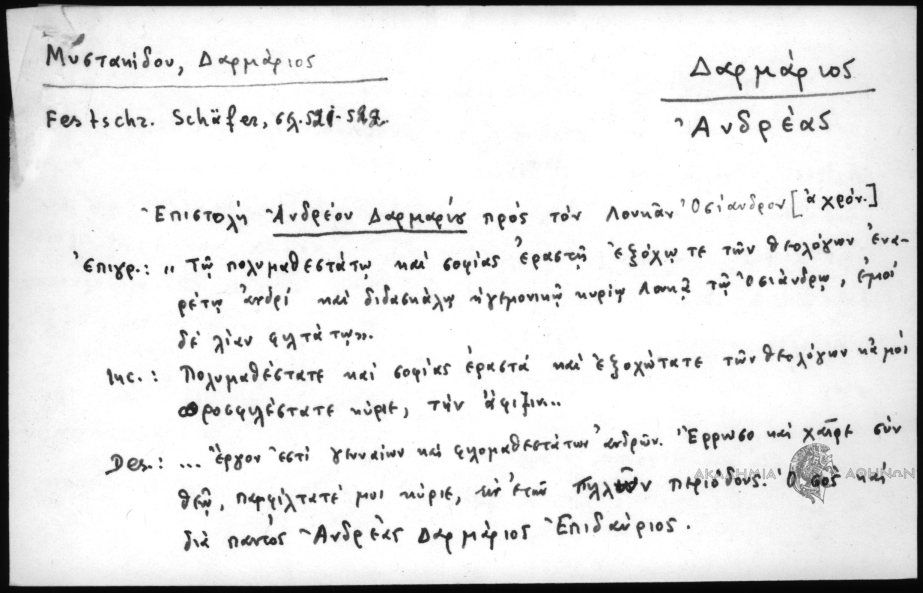 Μυστακίδου, Δαρμάριος
Δαρμάριος
Festschr. Schäfer, σλ. 521-522.
Ἀνδρέας
Ἐπιστολὴ Ἀνδρέου Δαρμαρίου πρὸς τὸν Λουκᾶν Ὀσίανδρον [ἀχρόν.]
Ἐπιγρ.: „ Τῷ πολυμαθεστάτῳ καὶ σοφίας ἐραστῇ ἐξόχῳ τε τῶν θεολόγων ἐνα-
ρέτῳ ἀνδρὶ καὶ διδασκάλῳ ἡγεμονικῷ κυρίῳ Λουκᾷ τῷ Ὀσιάνδρῳ, ἐμοὶ
δὲ λίαν φιλτάτῳ».
Inc.: Πολυμαθέστατε καὶ σοφίας ἐραστὰ καὶ ἐξοχώτατε τῶν θεολόγων κἀμοὶ
προσφιλέστατε κύριε, τὴν ἄφιξιν..
Des.: ... ἔργον ἐστὶ γενναίων καὶ φιλομαθεστάτων ἀνδρῶν. Ἔρρωσο καὶ χαῖρε σὺν
θεῷ, παμφίλτατέ μοι κύριε, ἐν ἐτῶν πολλῶν περιόδους. Ὁ σὸς καὶ
διὰ παντὸς Ἀνδρέας Δαρμάριος Ἐπιδαύριος.
ΑΚΑΔΗΜΙΑ ΑΘΗΝΩΝ